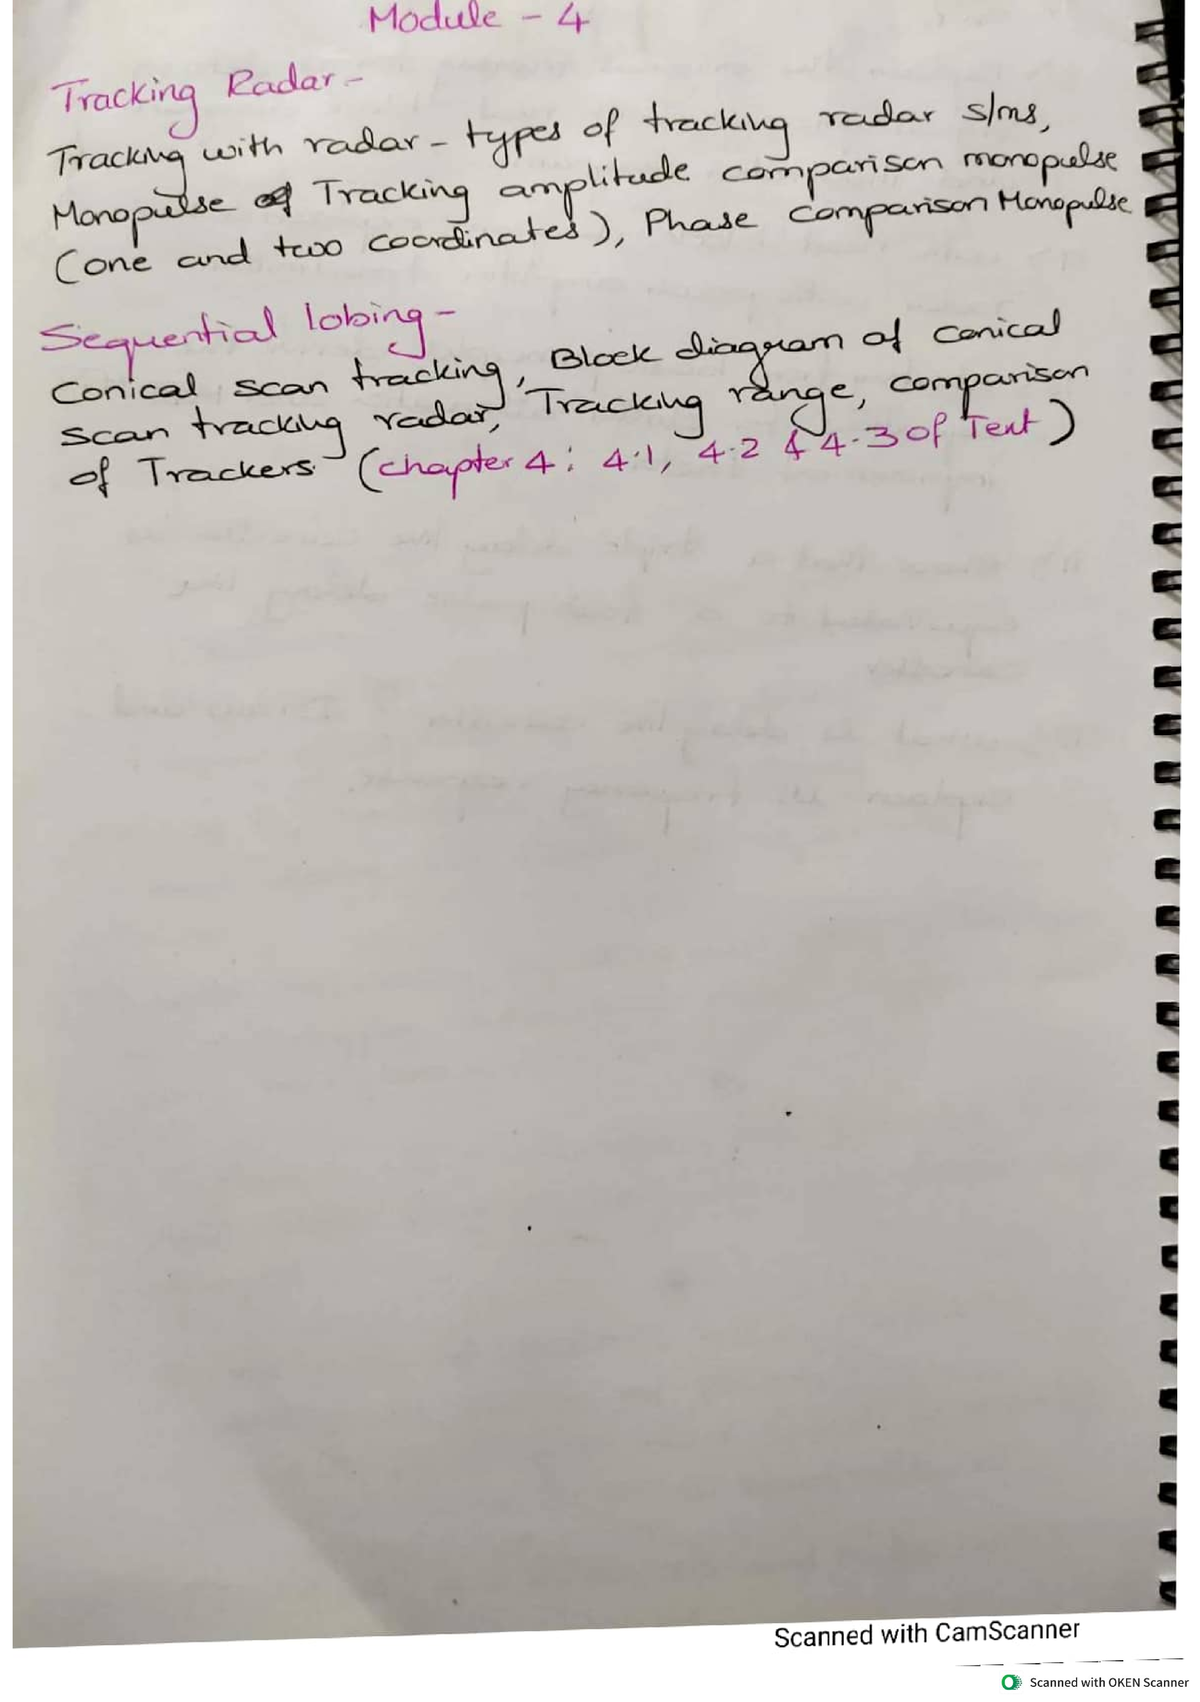 Module - 4
Tracking Radar -
Tracking with radar - types of tracking radar s/ms,
Monopulse Tracking amplitude comparison monopulse
(one and two coordinates), Phase comparison Monopulse
Sequential lobing -
Conical scan tracking, Block diagram of conical
scan tracking radar, Tracking range, comparison
of Trackers. (chapter 4: 4.1, 4.2 & 4.3 of Text)
Scanned with CamScanner
Scanned with OKEN Scanner